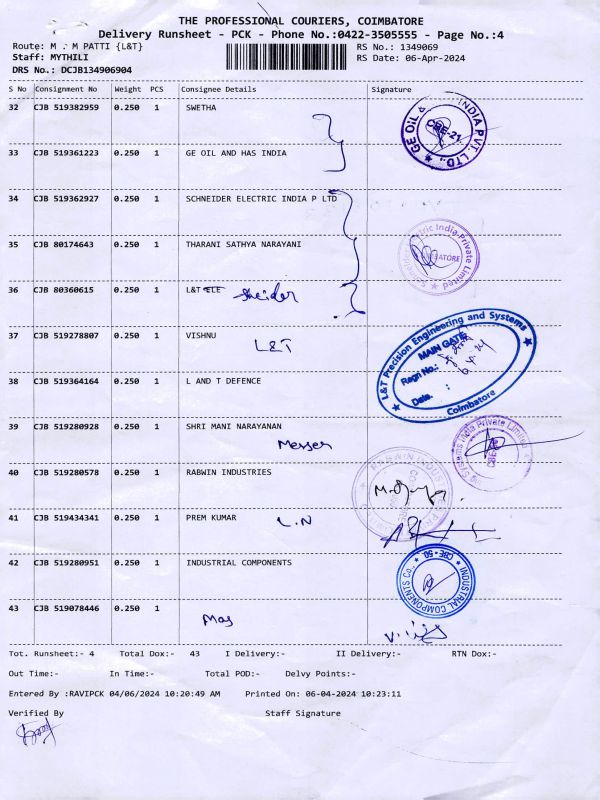 THE PROFESSIONAL COURIERS, COIMBATORE
Delivery Runsheet - PCK - Phone No.:0422-3505555 - Page No.:4
Route: M . M PATTI {L&T} RS No.: 1349069
Staff: MYTHILI RS Date: 06-Apr-2024
DRS No.: DCJB134906904
S No Consignment No Weight PCS Consignee Details Signature
32 CJB 519382959 0.250 1 SWETHA
GE OIL & INDIA PVT. LTD., CBE-21
33 CJB 519361223 0.250 1 GE OIL AND HAS INDIA
34 CJB 519362927 0.250 1 SCHNEIDER ELECTRIC INDIA P LTD
35 CJB 80174643 0.250 1 THARANI SATHYA NARAYANI
Electric India Private Limited
36 CJB 80360615 0.250 1 L&T ELE Sneider
37 CJB 519278807 0.250 1 VISHNU
L&T
L&T Precision Engineering and Systems
MAIN GATE
Regn No.:
Date. :
Coimbatore
38 CJB 519364164 0.250 1 L AND T DEFENCE
39 CJB 519280928 0.250 1 SHRI MANI NARAYANAN
Messer
Systems India Private Limited
CBE
40 CJB 519280578 0.250 1 RABWIN INDUSTRIES
RABWIN INDUSTRIES
41 CJB 519434341 0.250 1 PREM KUMAR L.N
42 CJB 519280951 0.250 1 INDUSTRIAL COMPONENTS
INDUSTRIAL COMPONENTS Co., CBE-50
43 CJB 519078446 0.250 1
Mas
Tot. Runsheet:- 4 Total Dox:- 43 I Delivery:- II Delivery:- RTN Dox:-
Out Time:- In Time:- Total POD:- Delvy Points:-
Entered By :RAVIPCK 04/06/2024 10:20:49 AM Printed On: 06-04-2024 10:23:11
Verified By Staff Signature